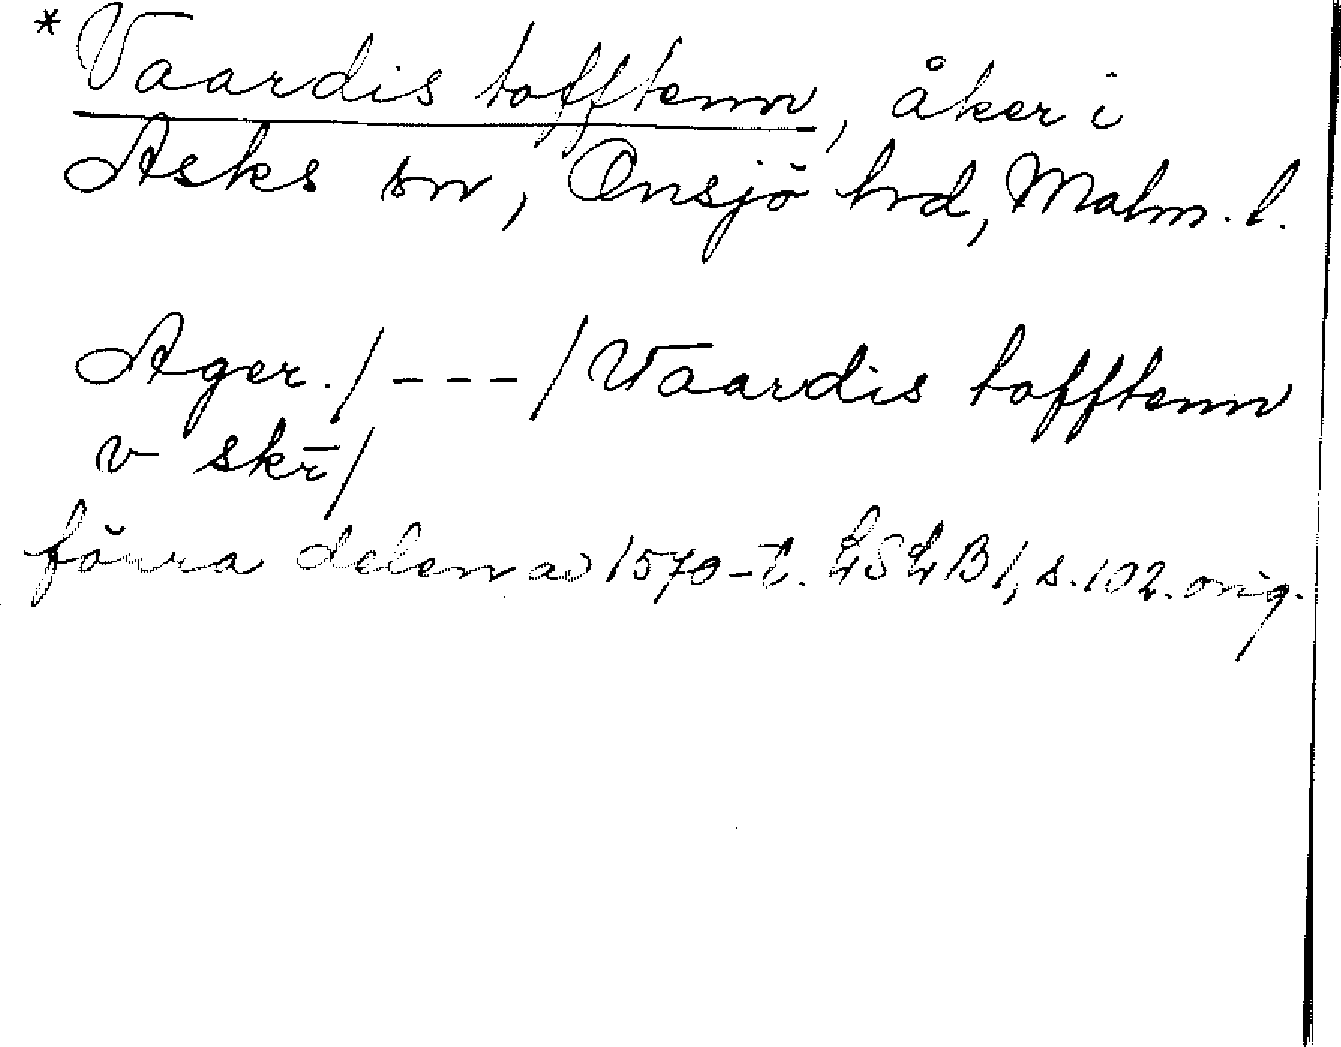 * Vaardis tofftenn, åker i
Asks sn, Onsjö hrd, Malm. l.
Ager. / - - - / Vaardis tofftenn
v skr̄ /
förra delen av 1570-t. LSLB 1, s. 102. orig.